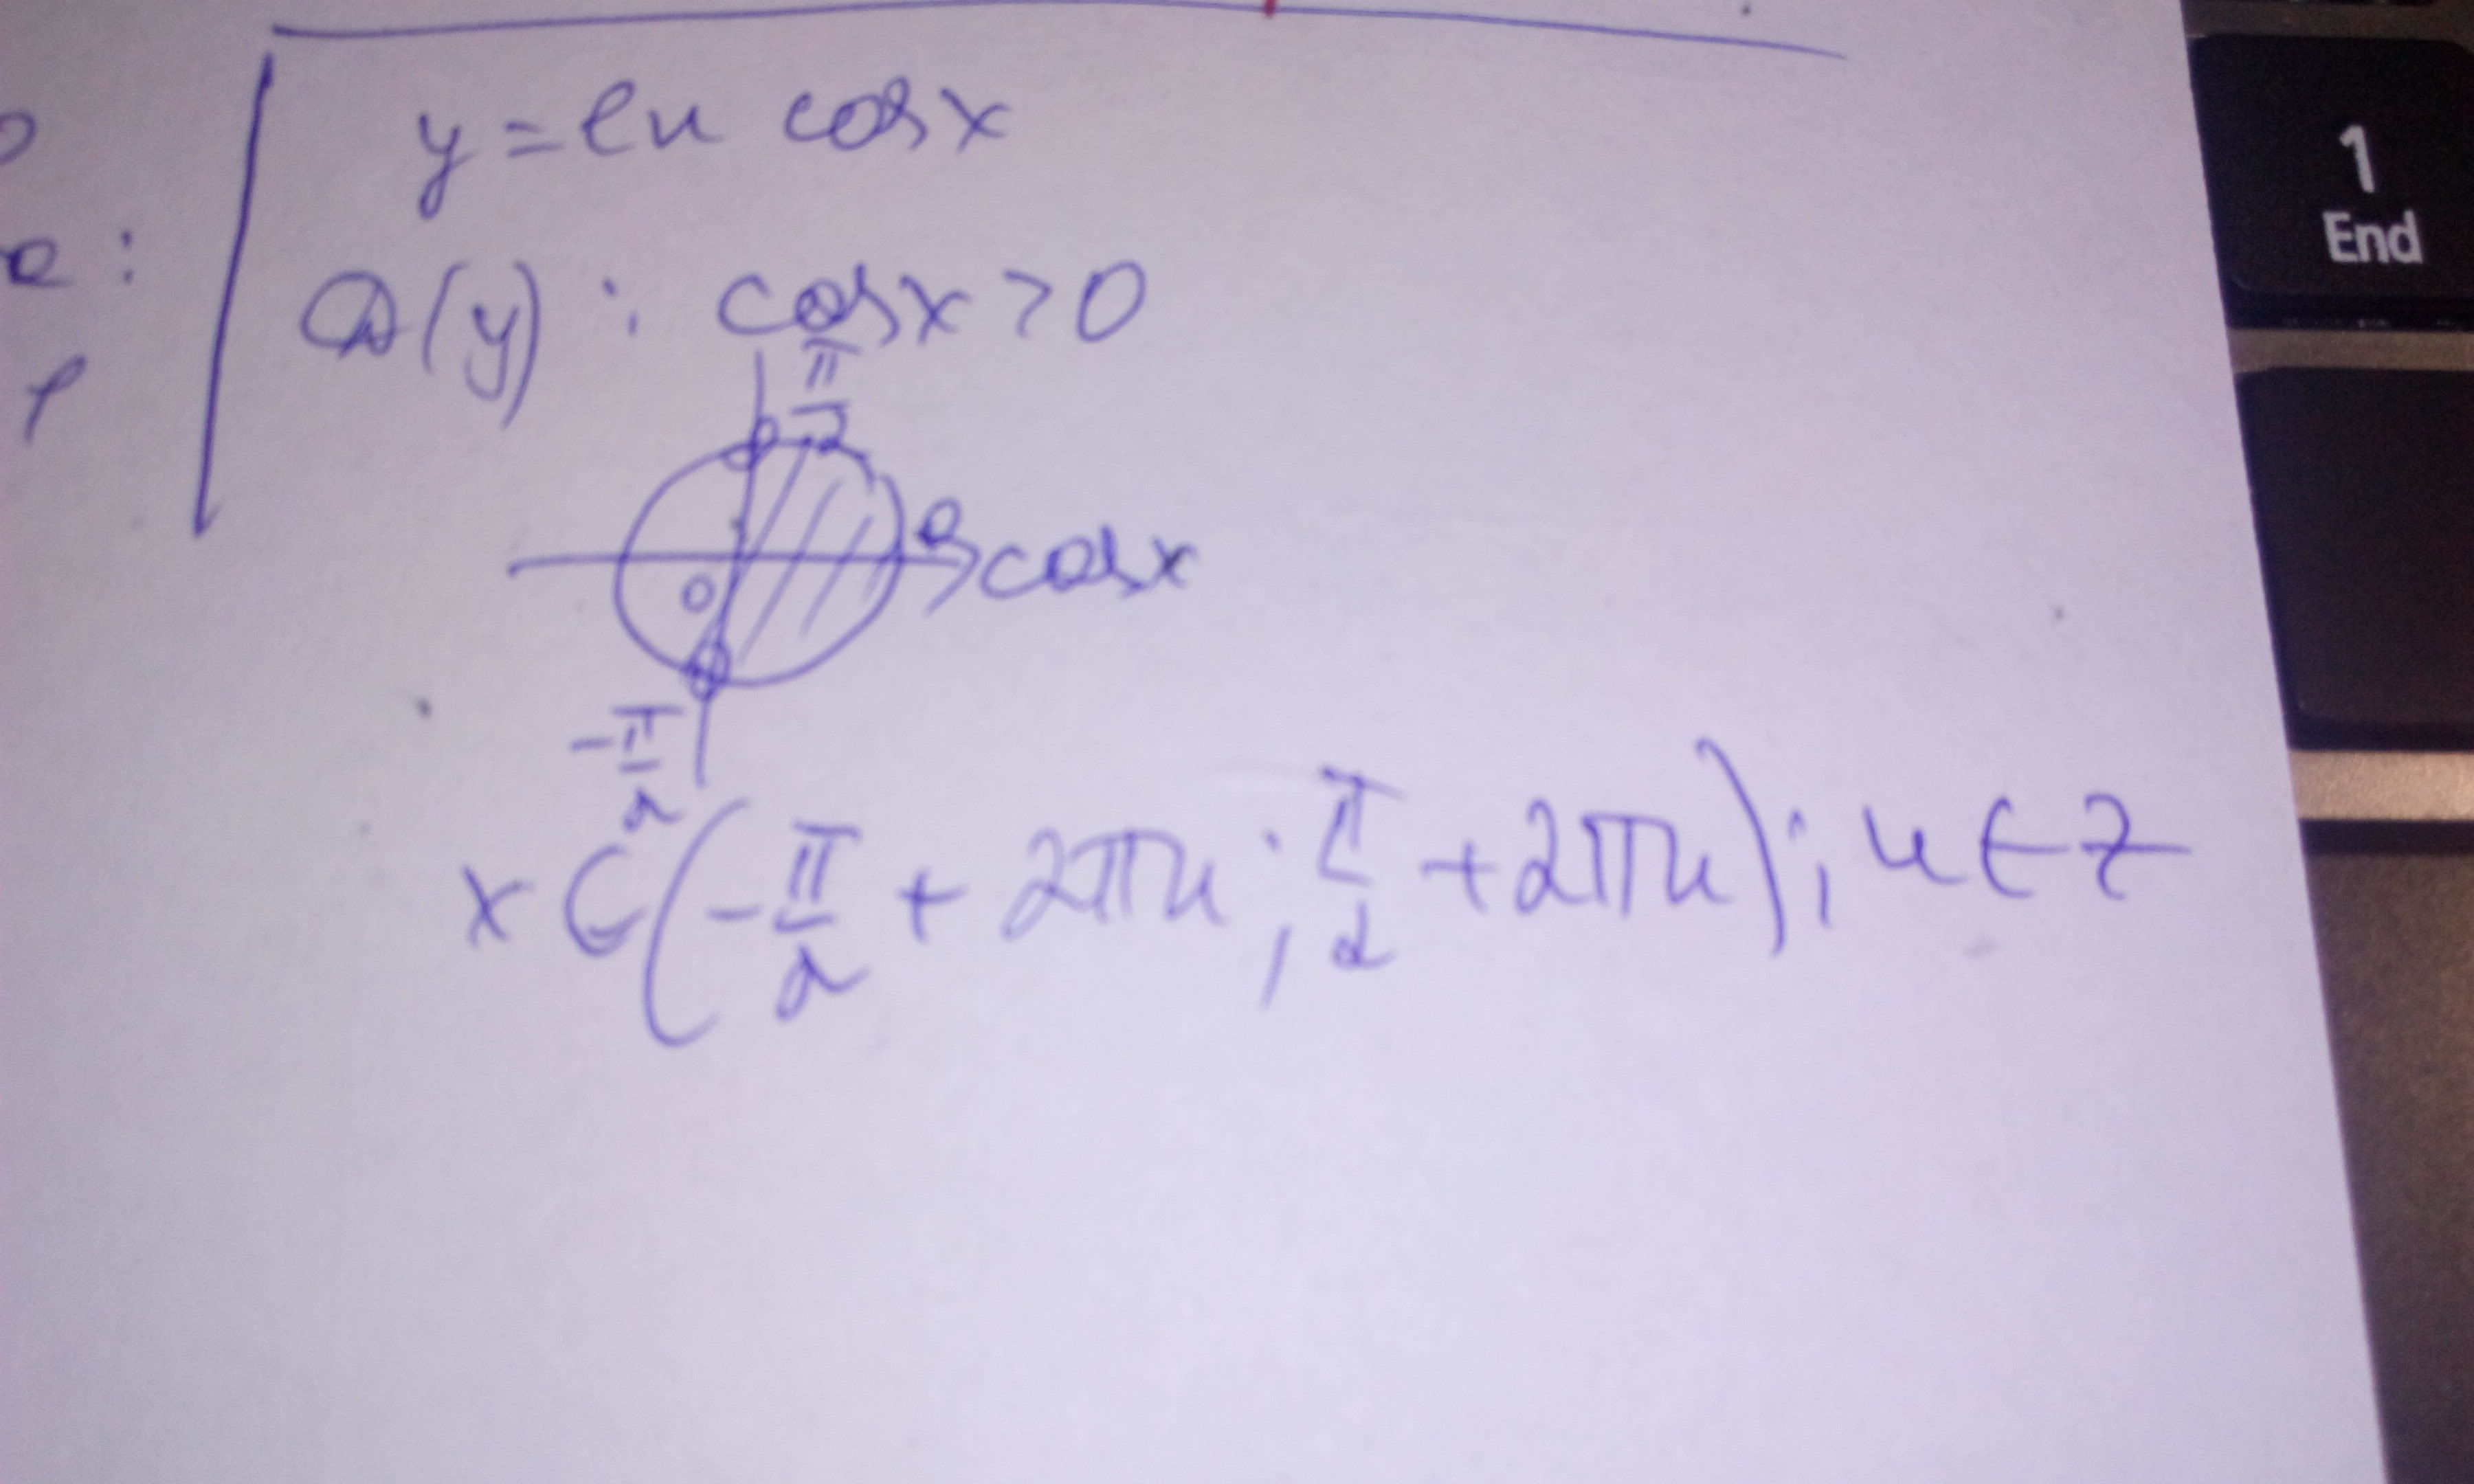 y = ln cos x
D(y) : cos x > 0
π/2
0
cos x
-π/2
x ∈ (-π/2 + 2πn ; π/2 + 2πn) ; n ∈ Z
1
End